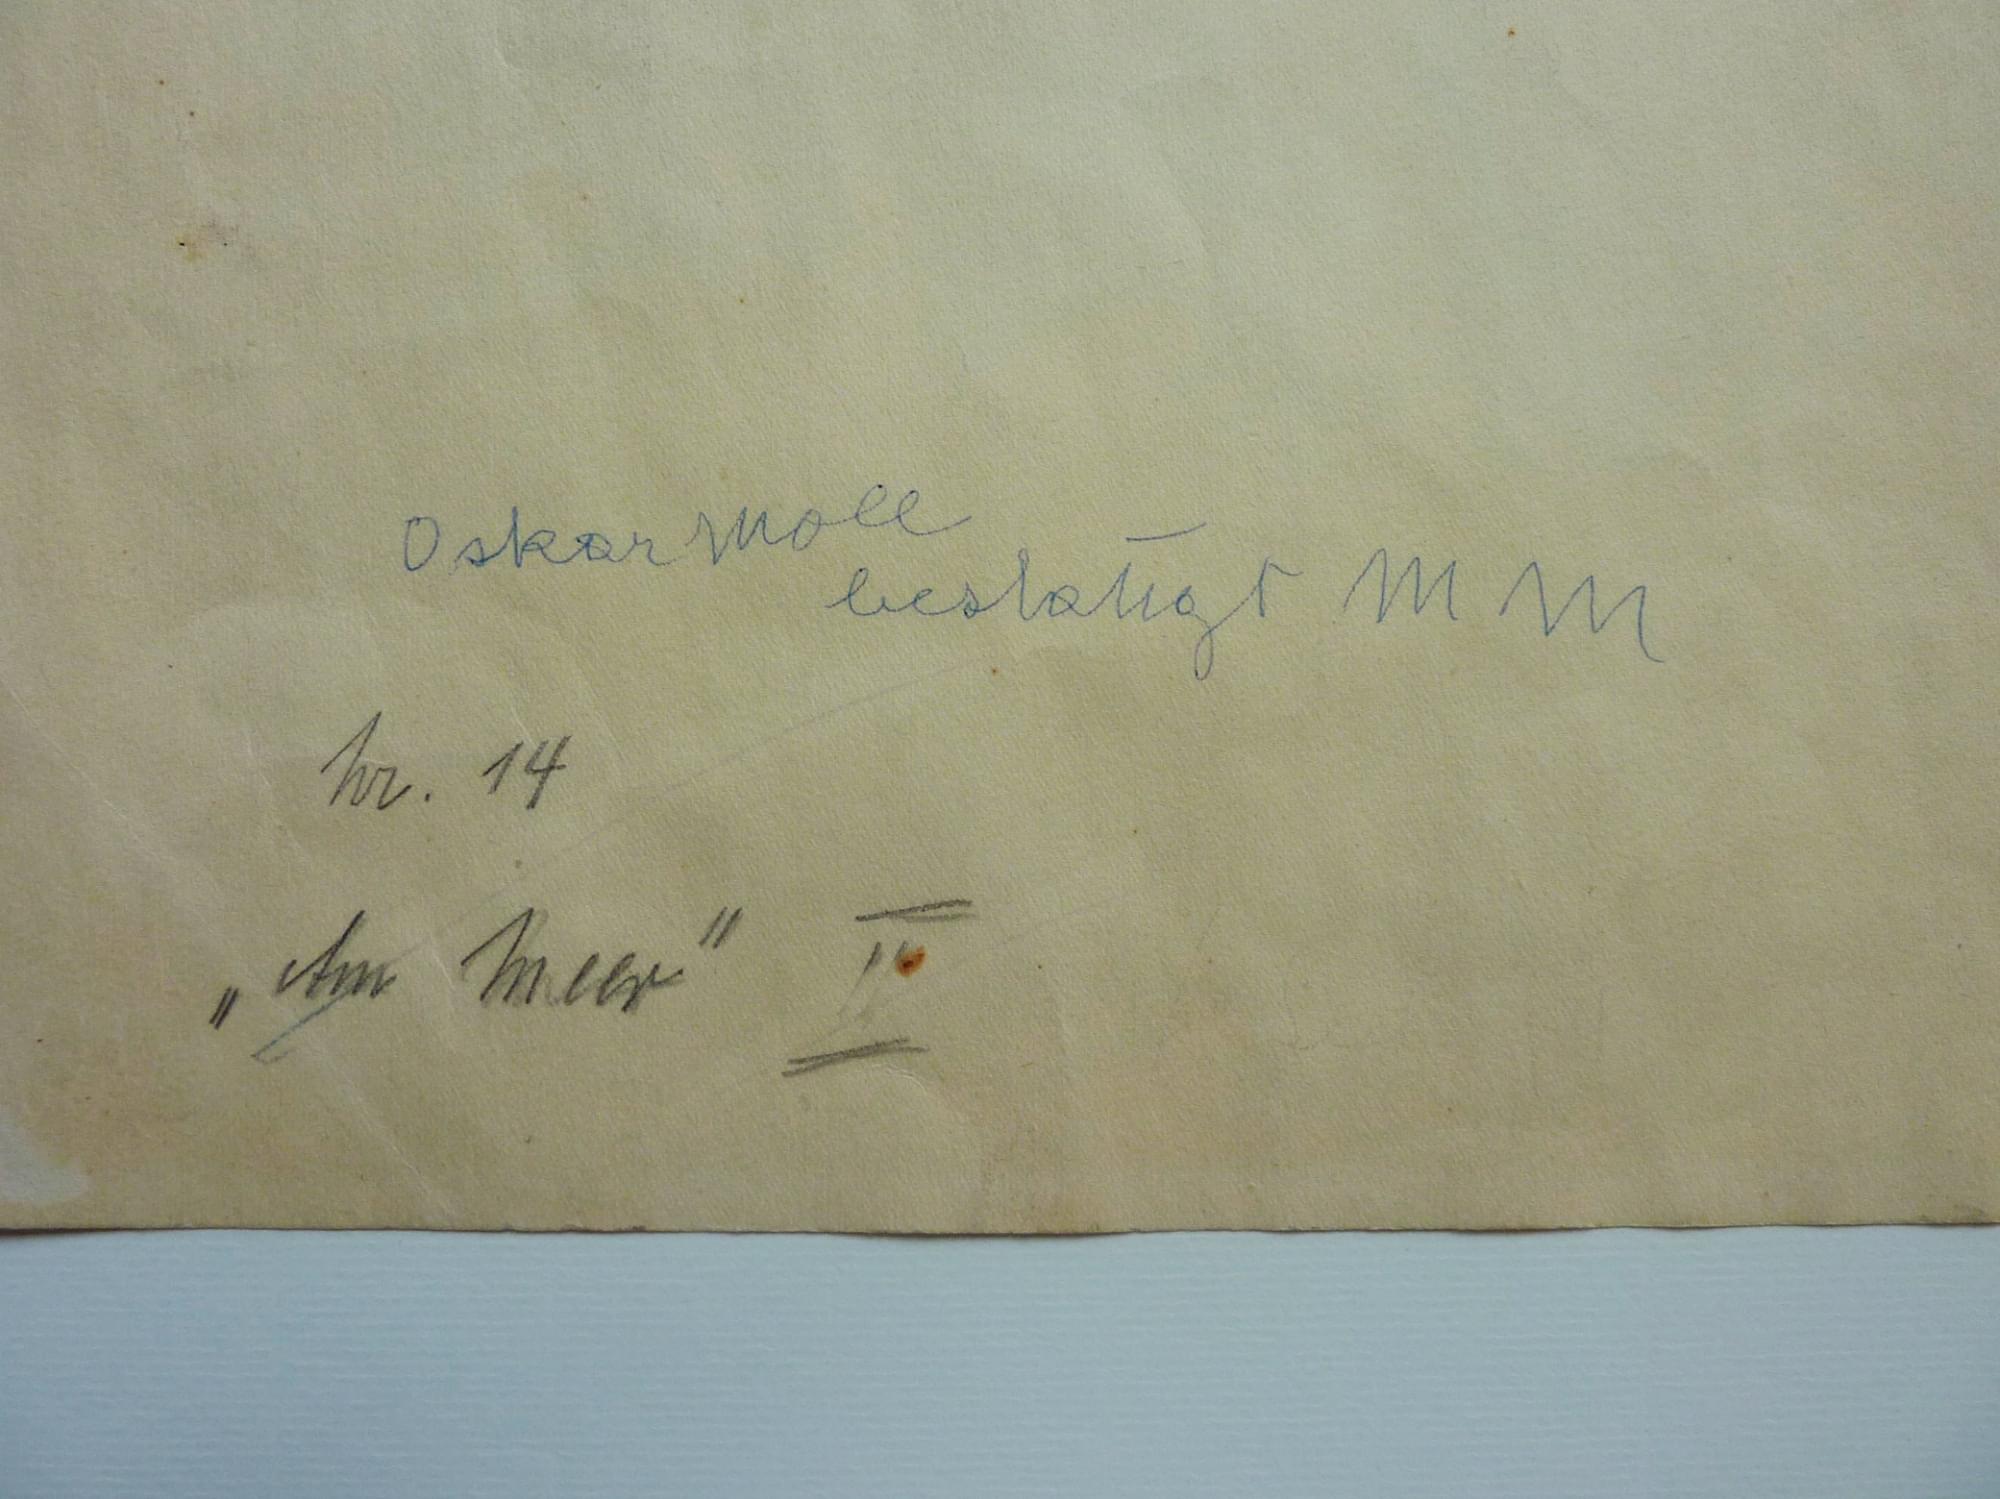 Oskar Moll
bestätigt M M
Nr. 14
„Am Meer" II